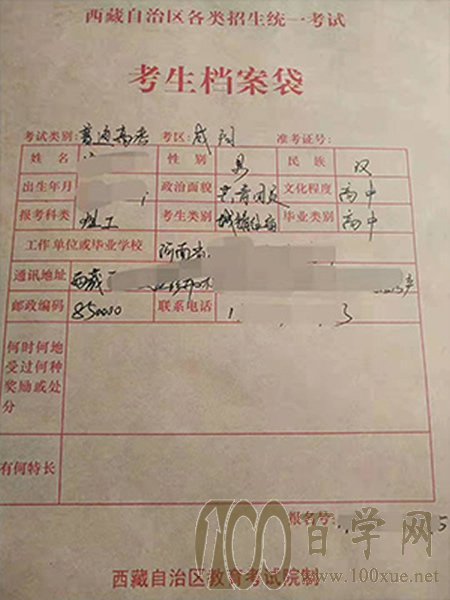 西藏自治区各类招生统一考试
考生档案袋
考试类别: 普通高考 考区: 咸阳 准考证号:
姓名 性别 男 民族 汉
出生年月 政治面貌 共青团员 文化程度 高中
报考科类 理工 考生类别 城镇应届 毕业类别 高中
工作单位或毕业学校
通讯地址 西藏
邮政编码 850000 联系电话 1
何时何地受过何种奖励或处分
有何特长
报名号: 5
100自学网
www.100xue.net
西藏自治区教育考试院制